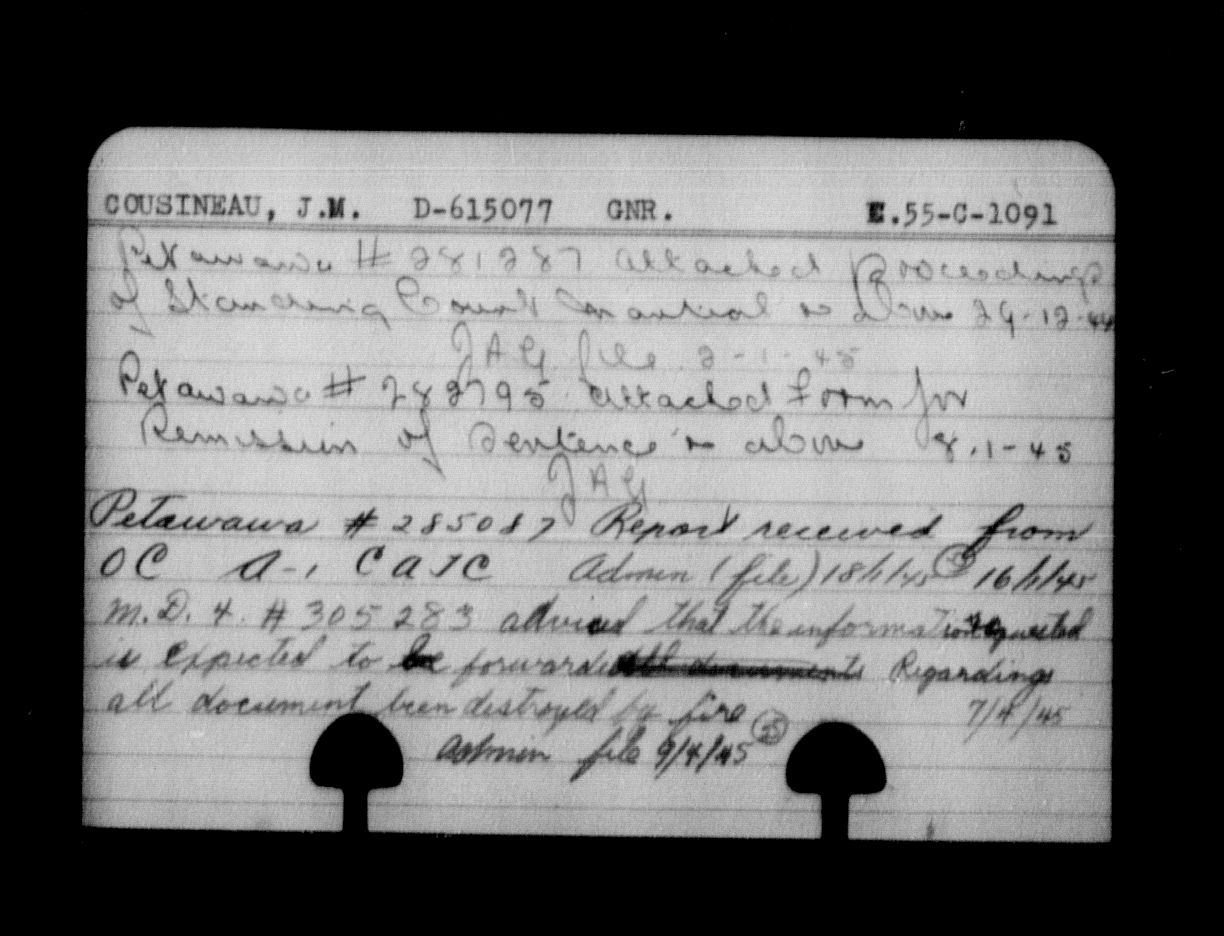 COUSINEAU, J.M. D-615077 GNR. E.55-C-1091
Petawawa # 281287 attached Proceedings
of Standing Court Martial re above 29-12-44
JAG file 2-1-45
Petawawa # 282795 attached Form for
Remission of Sentence re above 8.1-45
JAG
Petawawa # 285087 Report received from
OC A-1 CATC Admin (file) 18/1/45 16/1/45
M.D. 4. # 305 283 advised that the information requested
is expected to be forwarded all documents Regarding
all document been destroyed by fire 7/4/45
Admin file 9/4/45 25